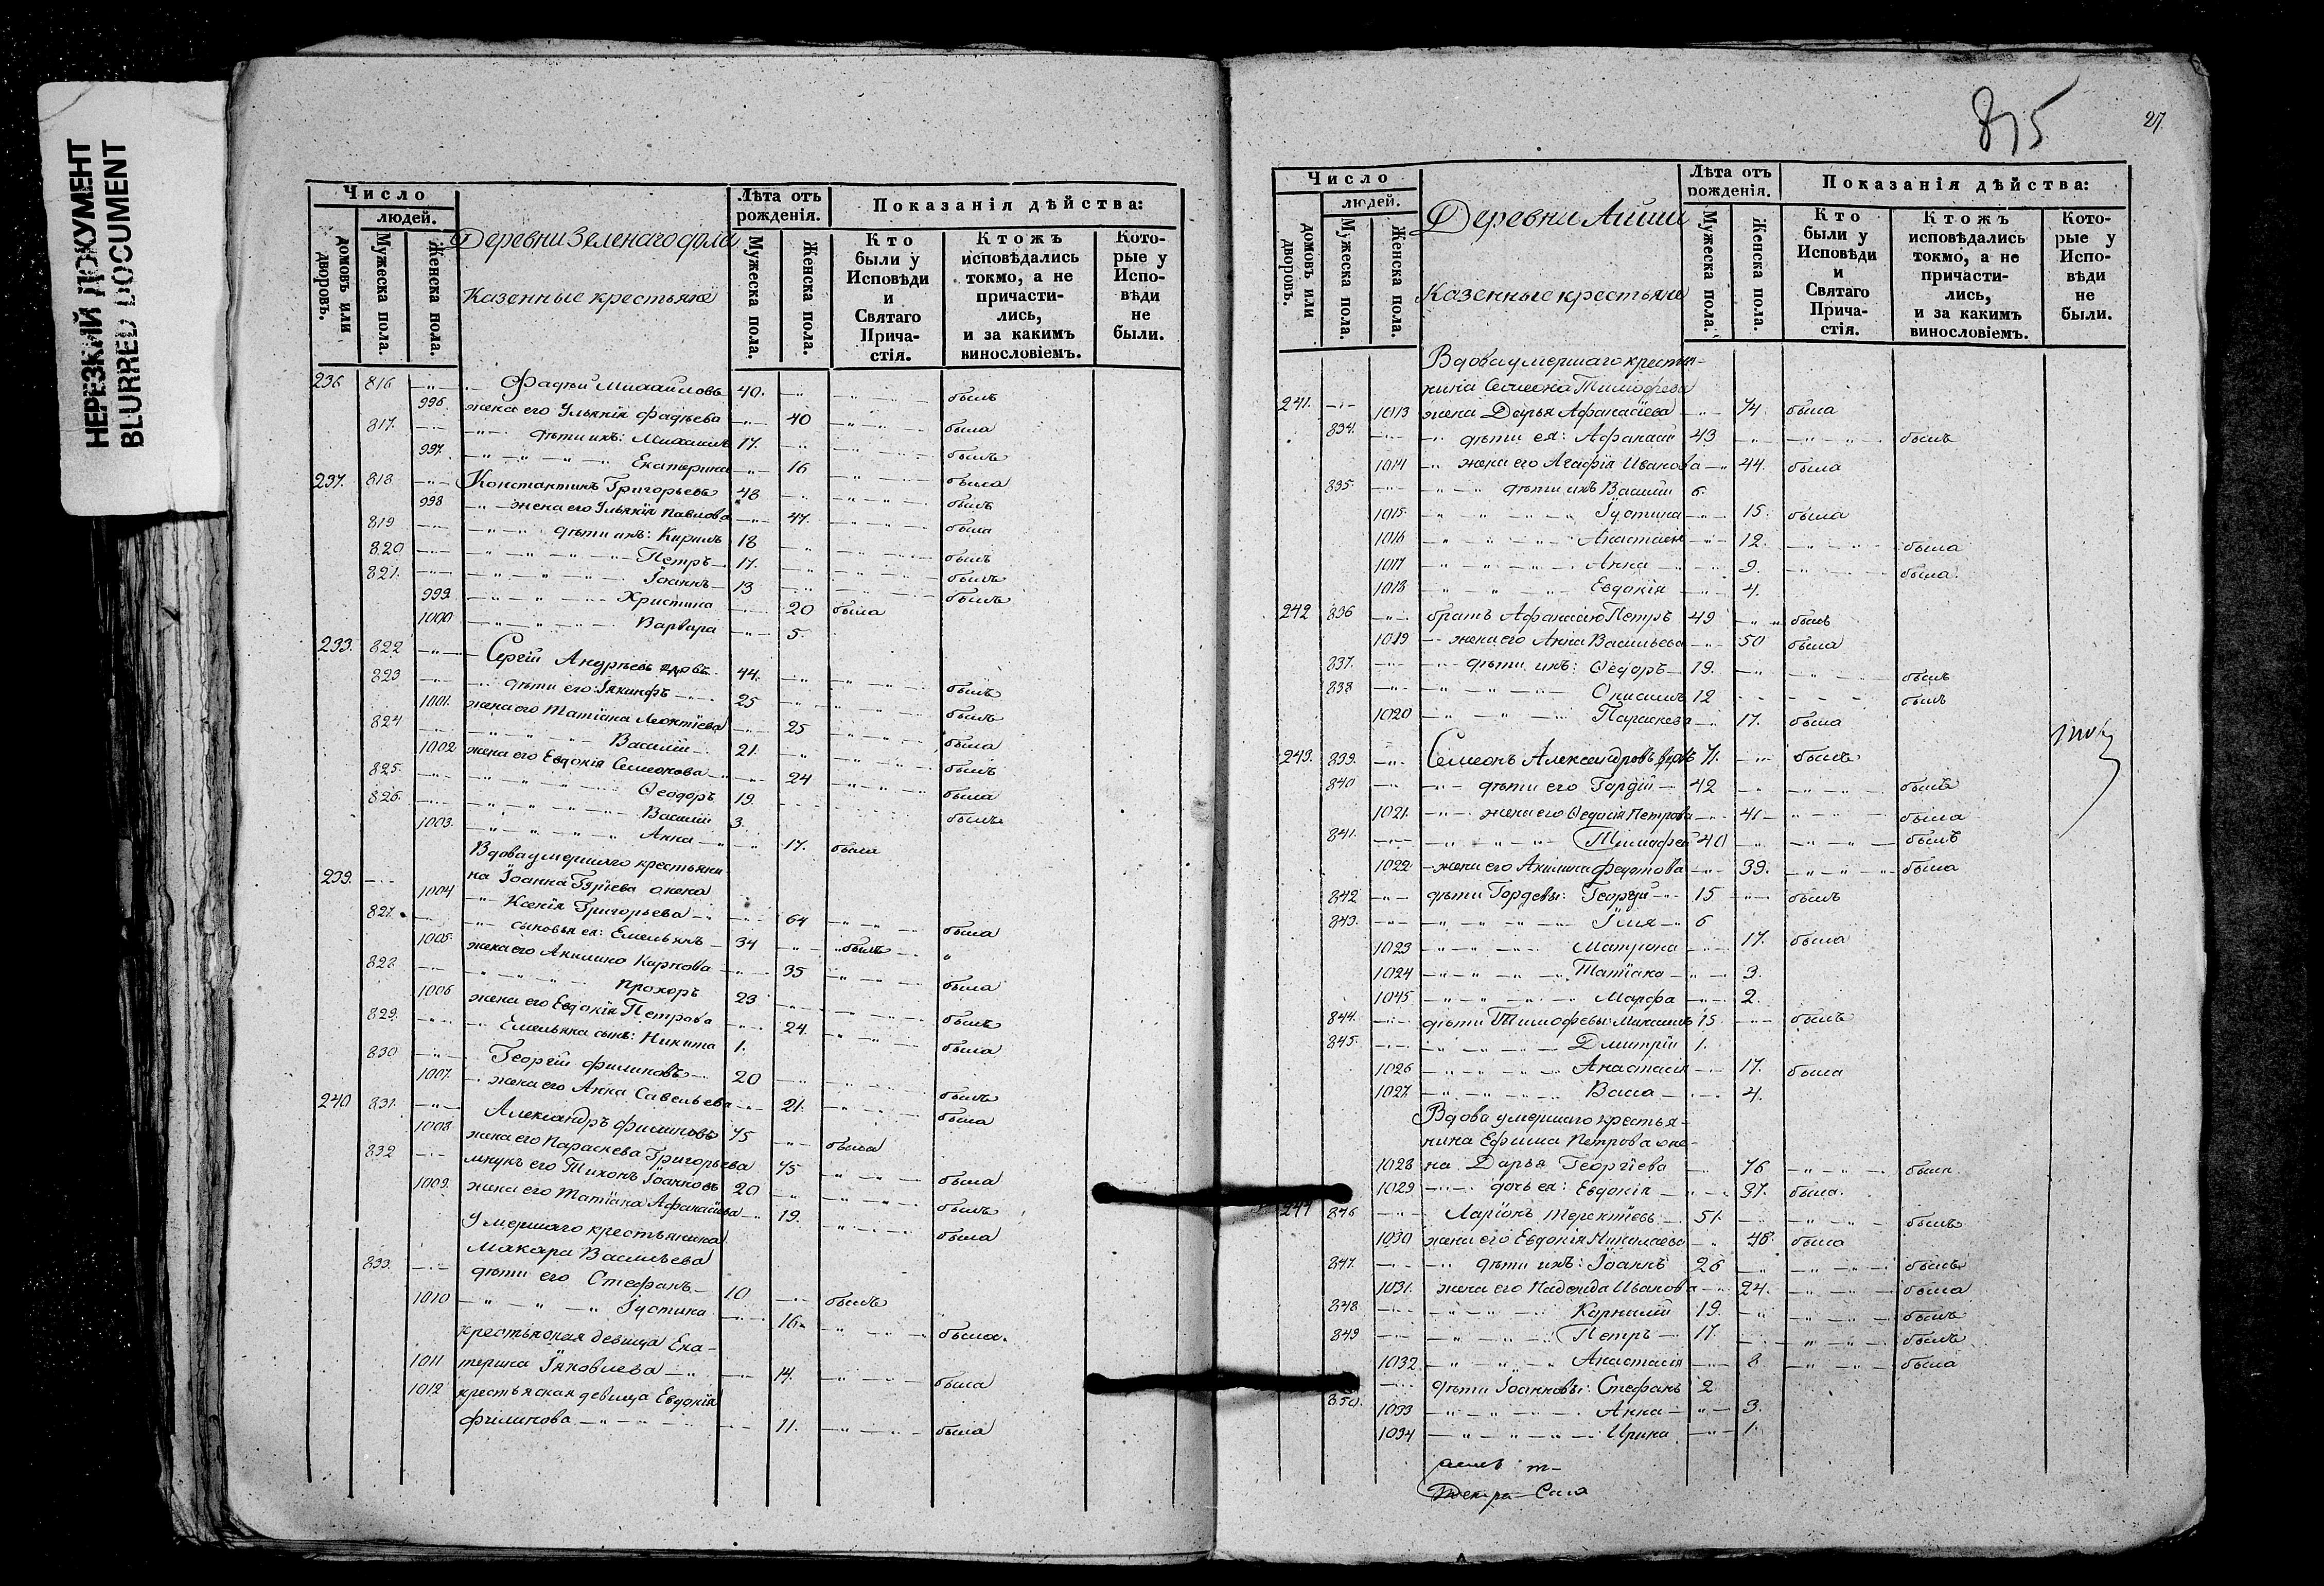 НЕРЕЗКИЙ ДОКУМЕНТ
BLURRED DOCUMENT
Число
людей.
домовъ или дворовъ.
Мужеска пола.
Женска пола.
Деревни Зеленаго дола
Казенные крестьяне
Лѣта отъ рожденія.
Мужеска пола.
Женска пола.
Показанія дѣйства:
Кто были у Исповѣди и Святаго Прича-стія.
Ктожъ исповѣдались токмо, а не причасти-лись, и за какимъ винословіемъ.
Кото-рые у Испо-вѣди не были.
236 816 Фадѣй Михаиловъ 40. былъ
996 жена его Ульянія Фадѣева 40 была
817. дѣти ихъ: Михаилъ 17. былъ
997. Екатерина 16 была
237. 818 Константинъ Григорьевъ 48 былъ
998 жена его Ульянія Павлова 47. была
819 дѣти ихъ: Кирилъ 18 былъ
820 Петръ 17. былъ
821. Іоаннъ 13 былъ
999. Христина 20 была
1000 Варвара 5.
238. 822 Сергій Андрѣевъ вдовъ 44. былъ
823 дѣти его: Іакинфъ 25 былъ
1001. жена его Татіана Леонтіева 25 была
824 Василій 21. былъ
1002 жена его Евдокія Семенова 24 была
825. Ѳеодоръ 19. былъ
826. Василій 3.
1003. Анна 17. была
Вдова умершаго крестьяни-
239. на Іоанна жена
1004 Ксенія Григорьева 64 была
827. сыновья ея: Емельянъ 34 былъ
1005. жена его Акилина Карпова 35 была
828 Прохоръ 23 былъ
1006 жена его Евдокія Петрова 24. была
829. Емельяна сынъ: Никита 1.
830 Георгій Филиповъ 20 былъ
1007. жена его Анна Савельева 21. была
240 831. Александръ Филиповъ 75 былъ
1008 жена его Параскева Григорьева 75 была
832 внукъ его Тихонъ Іоанновъ 20 былъ
1009. жена его Татіана Афанасіева 19. была
Умершаго крестьянина
Макара Васильева
833. дѣти его Стефанъ 10 былъ
1010 Іустина 16. была.
крестьянская девица Ека-
1011 терина Іяковлева 14. была
1012 крестьянская девица Евдокія
Филипова 11. была
875
27.
Число
людей.
домовъ или дворовъ.
Мужеска пола.
Женска пола.
Деревни Айши
Казенные крестьяне
Лѣта отъ рожденія.
Мужеска пола.
Женска пола.
Показанія дѣйства:
Кто были у Исповѣди и Святаго Прича-стія.
Ктожъ исповѣдались токмо, а не причасти-лись, и за какимъ винословіемъ.
Кото-рые у Испо-вѣди не были.
Вдова умершаго крестья-
нина Семеона Тимофева
241. 1013 жена Дарья Афанасіева 74. была
834. дѣти ея: Афанасій 43 былъ
1014 жена его Агафія Иванова 44. была
835. дѣти ихъ Василій 6.
1015. Іустина 15. была
1016 Анастасія 12. была
1017 Анна 9. была.
1018 Евдокія 4.
242 836 братъ Афанасію Петръ 49 былъ
1019 жена его Анна Васильева 50 была
837. дѣти ихъ: Ѳедоръ 19. былъ
838 Онисимъ 12 былъ
1020 Параскева 17. была
243. 839. Семеонъ Александровъ вдовъ 71. былъ
840 дѣти его Гордій 42 былъ
1021. жена его Ѳедосія Петрова 41 была
841. Тимофей 40 былъ
1022 жена его Акилина Федотова 39. была
842 дѣти Гордевы: Георгій 15 былъ
843. Илія 6
1023 Матрона 17. была
1024 Татіана 3.
1045. Марфа 2.
844. дѣти Тимофевы: Максимъ 15 былъ
845. Дмитрій 1.
1026 Анастасія 17. была
1027. Васса 4.
Вдова умершаго крестья-
нина Ефима Петрова же-
1028 на Дарья Георгіева 76 была
1029 дочь ея: Евдокія 37. была.
244 846 Ларіонъ Терентіевъ 51. былъ
1030 жена его Евдокія Николаева 46. была
847. дѣти ихъ: Іоаннъ 26 былъ
1031. жена его Надежда Иванова 24. была
848 Карнилій 19. былъ
849 Петръ 17. былъ
1032 Анастасія 8 была
850. дѣти Іоанновы: Стефанъ 2
1033 Анна 3.
1034 Ирина 1.